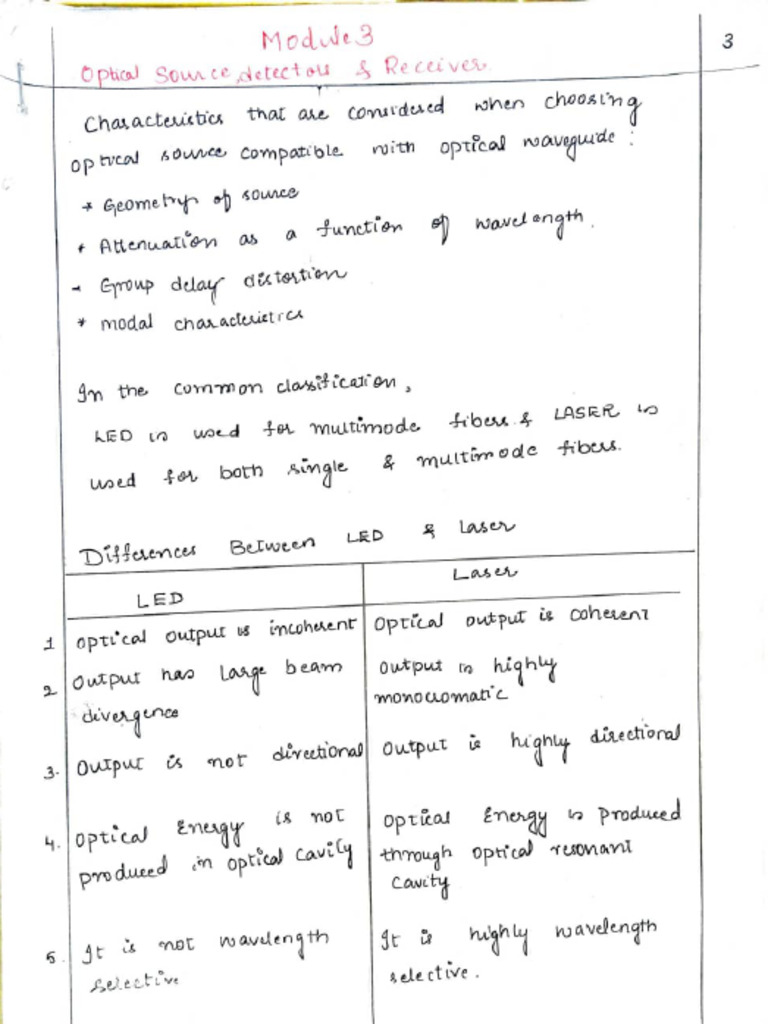 3
Module 3
Optical Source, detectors & Receiver
Characteristics that are considered when choosing
optical source compatible with optical waveguide :
* Geometry of source
* Attenuation as a function of wavelength.
- Group delay distortion
* modal characteristics
In the common classification,
LED is used for multimode fibers & LASER is
used for both single & multimode fibers.
Differences Between LED & Laser
LED
Laser
1 Optical output is incoherent
Optical output is coherent
2 Output has large beam
divergence
Output is highly
monocromatic
3. Output is not directional
Output is highly directional
4. Optical Energy is not
produced in optical cavity
Optical Energy is produced
through optical resonant
cavity
5. It is not wavelength
selective
It is highly wavelength
selective.